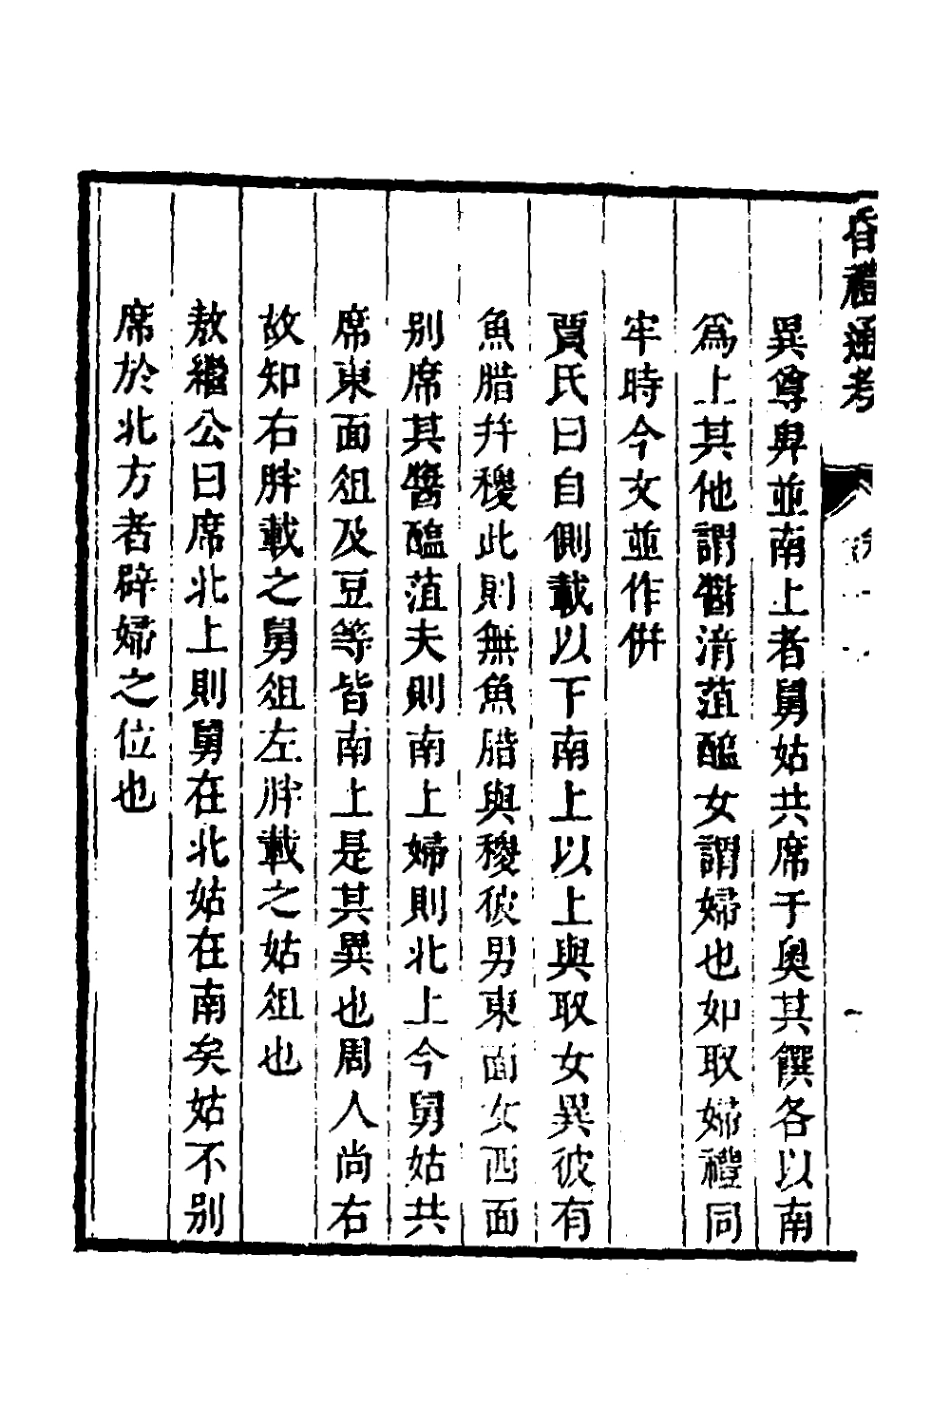 昏禮通考
異尊卑並南上者舅姑共席于奧其饌各以南
爲上其他謂醬湆菹醢女謂婦也如取婦禮同
牢時今文並作併
賈氏曰自側載以下南上以上與取女異彼有
魚腊幷稷此則無魚腊與稷彼男東面女西面
別席其醬醢菹夫則南上婦則北上今舅姑共
席東面俎及豆等皆南上是其異也周人尚右
故知右胖載之舅俎左胖載之姑俎也
敖繼公曰席北上則舅在北姑在南矣姑不別
席於北方者辟婦之位也